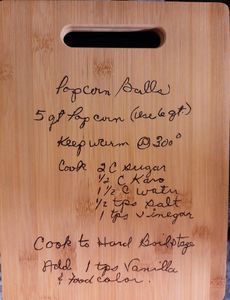 Popcorn Balls
5 qt Popcorn (Use 6 qt)
Keep warm @ 300°
Cook 2 C Sugar
1/2 C Karo
1 1/2 C Water
1/2 tps Salt
1 tps Vinegar
Cook to Hard Boil Stage
Add 1 tps Vanilla
& Food color.